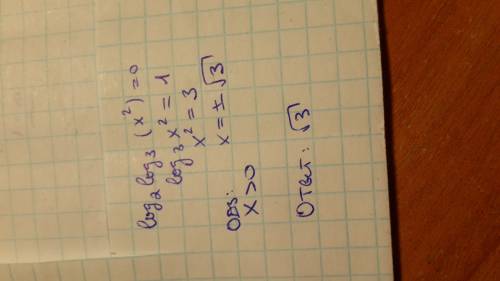 log₂ log₃ (x²) = 0
log₃ x² = 1
x² = 3
x = ± √3
ОДЗ:
x > 0
Ответ: √3